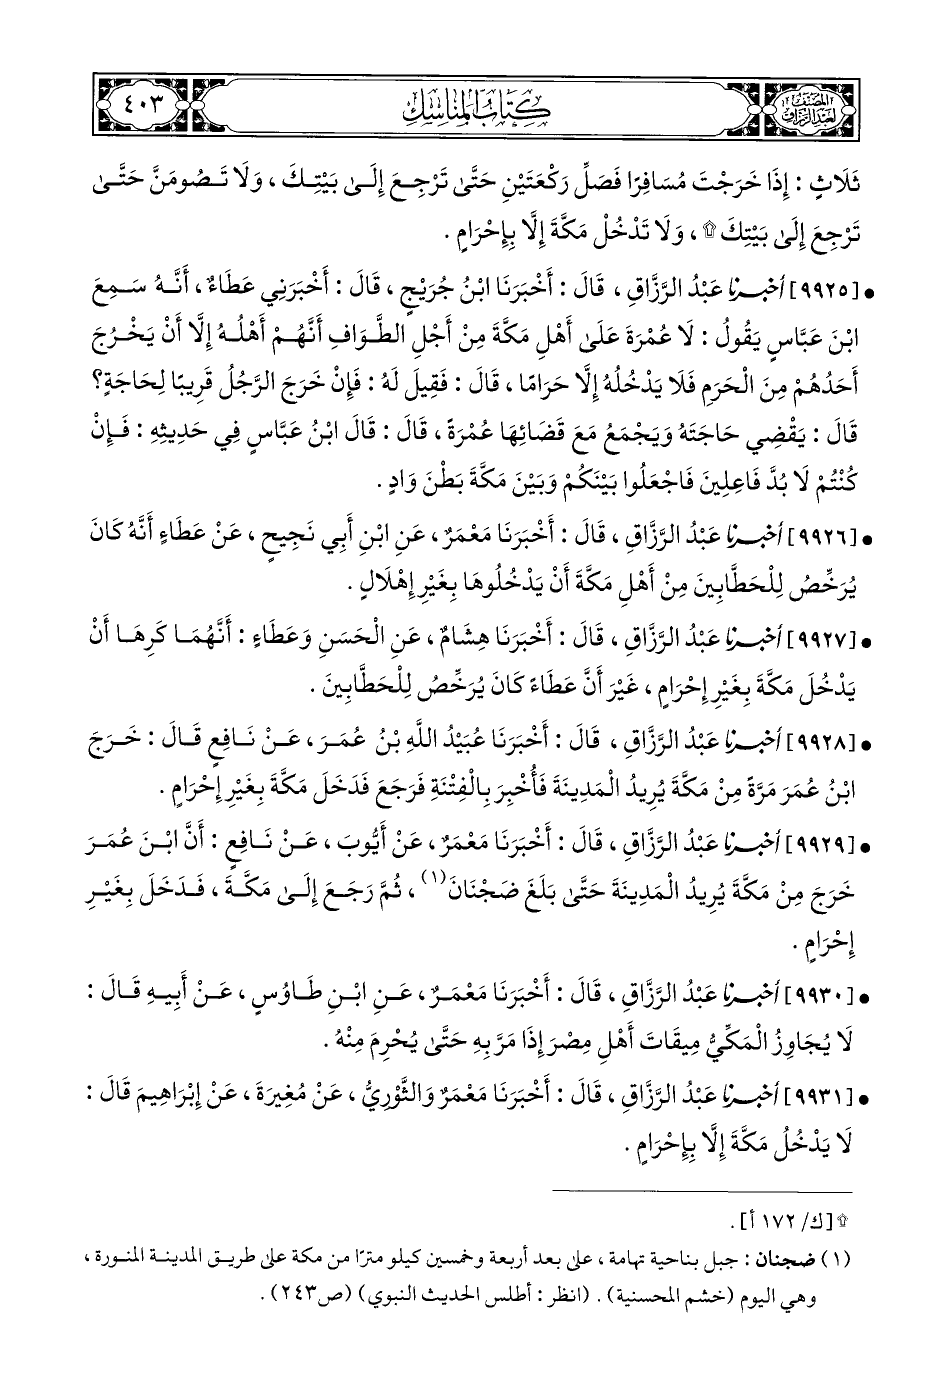 المصنف
لعبد الرزاق
كتاب المناسك
٤٠٣
ثَلَاثٍ : إِذَا خَرَجْتَ مُسَافِرًا فَصَلِّ رَكْعَتَيْنِ حَتَّى تَرْجِعَ إِلَى بَيْتِكَ ، وَلَا تَصُومَنَّ حَتَّى
تَرْجِعَ إِلَى بَيْتِكَ ۩ ، وَلَا تَدْخُلْ مَكَّةَ إِلَّا بِإِحْرَامٍ .
• [٩٩٢٥] أَخْبَرَنَا عَبْدُ الرَّزَّاقِ ، قَالَ : أَخْبَرَنَا ابْنُ جُرَيْجٍ ، قَالَ : أَخْبَرَنِي عَطَاءٌ ، أَنَّهُ سَمِعَ
ابْنَ عَبَّاسٍ يَقُولُ : لَا عُمْرَةَ عَلَى أَهْلِ مَكَّةَ مِنْ أَجْلِ الطَّوَافِ أَنَّهُمْ أَهْلُهُ إِلَّا أَنْ يَخْرُجَ
أَحَدُهُمْ مِنَ الْحَرَمِ فَلَا يَدْخُلُهُ إِلَّا حَرَامًا ، قَالَ : فَقِيلَ لَهُ : فَإِنْ خَرَجَ الرَّجُلُ قَرِيبًا لِحَاجَةٍ؟
قَالَ : يَقْضِي حَاجَتَهُ وَيَجْمَعُ مَعَ قَضَائِهَا عُمْرَةً ، قَالَ : قَالَ ابْنُ عَبَّاسٍ فِي حَدِيثِهِ : فَإِنْ
كُنْتُمْ لَا بُدَّ فَاعِلِينَ فَاجْعَلُوا بَيْنَكُمْ وَبَيْنَ مَكَّةَ بَطْنَ وَادٍ .
• [٩٩٢٦] أَخْبَرَنَا عَبْدُ الرَّزَّاقِ ، قَالَ : أَخْبَرَنَا مَعْمَرٌ ، عَنِ ابْنِ أَبِي نَجِيحٍ ، عَنْ عَطَاءٍ أَنَّهُ كَانَ
يُرَخِّصُ لِلْحَطَّابِينَ مِنْ أَهْلِ مَكَّةَ أَنْ يَدْخُلُوهَا بِغَيْرِ إِهْلَالٍ .
• [٩٩٢٧] أَخْبَرَنَا عَبْدُ الرَّزَّاقِ ، قَالَ : أَخْبَرَنَا هِشَامٌ ، عَنِ الْحَسَنِ وَعَطَاءٍ : أَنَّهُمَا كَرِهَا أَنْ
يَدْخُلَ مَكَّةَ بِغَيْرِ إِحْرَامٍ ، غَيْرَ أَنَّ عَطَاءً كَانَ يُرَخِّصُ لِلْحَطَّابِينَ .
• [٩٩٢٨] أَخْبَرَنَا عَبْدُ الرَّزَّاقِ ، قَالَ : أَخْبَرَنَا عُبَيْدُ اللَّهِ بْنُ عُمَرَ ، عَنْ نَافِعٍ قَالَ : خَرَجَ
ابْنُ عُمَرَ مَرَّةً مِنْ مَكَّةَ يُرِيدُ الْمَدِينَةَ فَأُخْبِرَ بِالْفِتْنَةِ فَرَجَعَ فَدَخَلَ مَكَّةَ بِغَيْرِ إِحْرَامٍ .
• [٩٩٢٩] أَخْبَرَنَا عَبْدُ الرَّزَّاقِ ، قَالَ : أَخْبَرَنَا مَعْمَرٌ ، عَنْ أَيُّوبَ ، عَنْ نَافِعٍ : أَنَّ ابْنَ عُمَرَ
خَرَجَ مِنْ مَكَّةَ يُرِيدُ الْمَدِينَةَ حَتَّى بَلَغَ ضَجْنَانَ(١) ، ثُمَّ رَجَعَ إِلَى مَكَّةَ ، فَدَخَلَ بِغَيْرِ
إِحْرَامٍ .
• [٩٩٣٠] أَخْبَرَنَا عَبْدُ الرَّزَّاقِ ، قَالَ : أَخْبَرَنَا مَعْمَرٌ ، عَنِ ابْنِ طَاوُسٍ ، عَنْ أَبِيهِ قَالَ :
لَا يُجَاوِزُ الْمَكِّيُّ مِيقَاتَ أَهْلِ مِصْرَ إِذَا مَرَّ بِهِ حَتَّى يُحْرِمَ مِنْهُ .
• [٩٩٣١] أَخْبَرَنَا عَبْدُ الرَّزَّاقِ ، قَالَ : أَخْبَرَنَا مَعْمَرٌ وَالثَّوْرِيُّ ، عَنْ مُغِيرَةَ ، عَنْ إِبْرَاهِيمَ قَالَ :
لَا يَدْخُلُ مَكَّةَ إِلَّا بِإِحْرَامٍ .
۩ [ك/ ١٧٢ أ] .
(١) ضجنان : جبل بناحية تهامة ، على بعد أربعة وخمسين كيلو مترًا من مكة على طريق المدينة المنورة ،
وهي اليوم (خشم المحسنية) . (انظر : أطلس الحديث النبوي) (ص٢٤٣) .